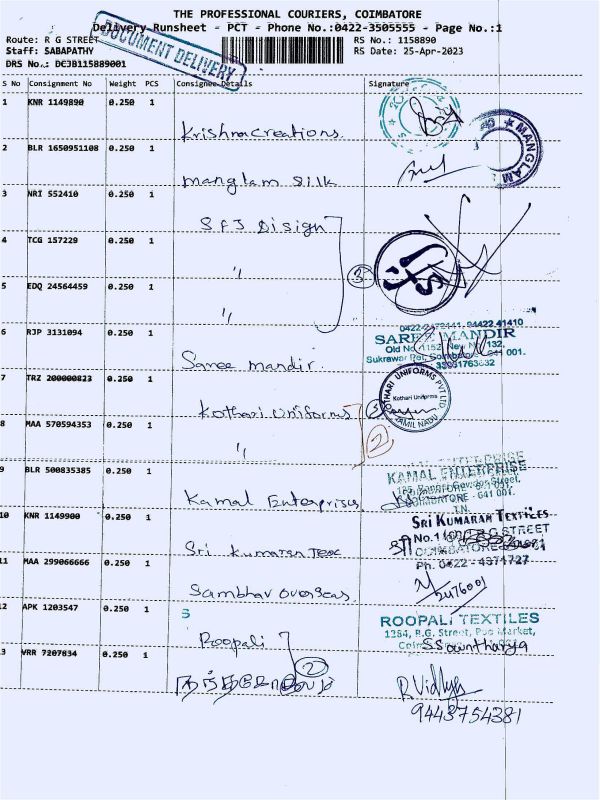 THE PROFESSIONAL COURIERS, COIMBATORE
Delivery Runsheet - PCT - Phone No.:0422-3505555 - Page No.:1
Route: R G STREET
Staff: SABAPATHY
DRS No.: DCJB115889001
DOCUMENT DELIVERY
RS No.: 1158890
RS Date: 25-Apr-2023
S No Consignment No Weight PCS Consignee Details Signature
1 KNR 1149890 0.250 1
Krishna Creations.
2 BLR 1650951108 0.250 1
MANGLAM
manglam silk
3 NRI 552410 0.250 1
S F J Disign
4 TCG 157229 0.250 1
〃 3
5 EDQ 24564459 0.250 1
〃
SAREE MANDIR
6 RJP 3131094 0.250 1
Saree mandir.
7 TRZ 200000823 0.250 1
KOTHARI UNIFORMS PVT LTD
Kothari Uniforms
TAMIL NADU
Kothari Uniforms
8 MAA 570594353 0.250 1
〃 2
9 BLR 500835385 0.250 1
KAMAL ENTERPRISE
COIMBATORE - 641 001.
Kamal Enterprises
10 KNR 1149900 0.250 1
SRI KUMARAN TEXTILES
Ph. 0422 - 4371727
Sri Kumaran Tex
11 MAA 299066666 0.250 1
Sambhav overseas
12 APK 1203547 0.250 1
S
ROOPALI TEXTILES
1384, R.G. Street, Market,
Roopali
S Sowntharya
13 VRR 7207834 0.250 1
2
R Vidhya
9443754381